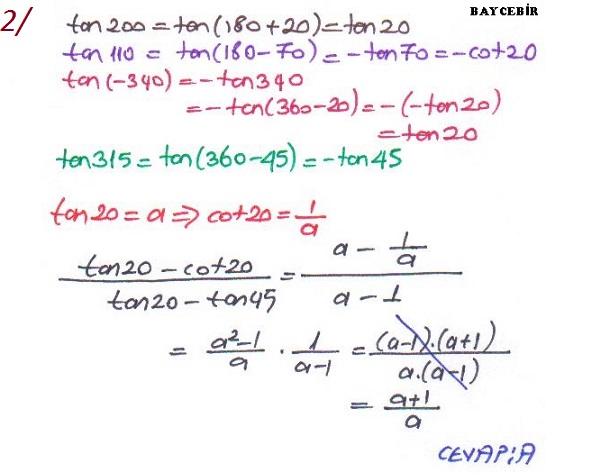 2/
BAYCEBİR
tan200 = tan(180+20) = tan20
tan110 = tan(180-70) = -tan70 = -cot20
tan(-340) = -tan340
= -tan(360-20) = -(-tan20)
= tan20
tan315 = tan(360-45) = -tan45
tan20 = a => cot20 = 1/a
(tan20 - cot20)/(tan20 - tan45) = (a - 1/a)/(a - 1)
= (a²-1)/a · 1/(a-1) = ((a-1).(a+1))/(a.(a-1))
= (a+1)/a
CEVAP:A